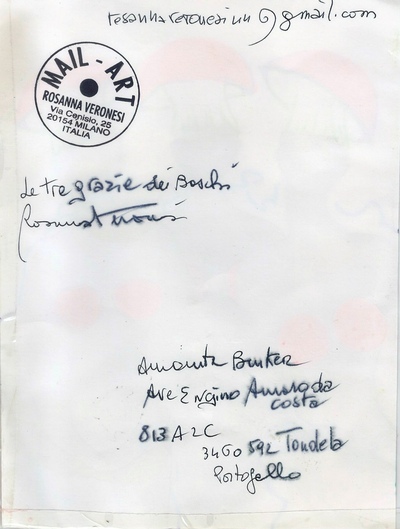 rosannaveronesinn@gmail.com
MAIL-ART
ROSANNA VERONESI
Via Cenisio, 25
20154 MILANO
ITALIA
Le tre grazie dei Boschi
Amanita Bunker
Ave Engino Amaroda
costa
813 A2C
3460 592 Tondela
Portogallo